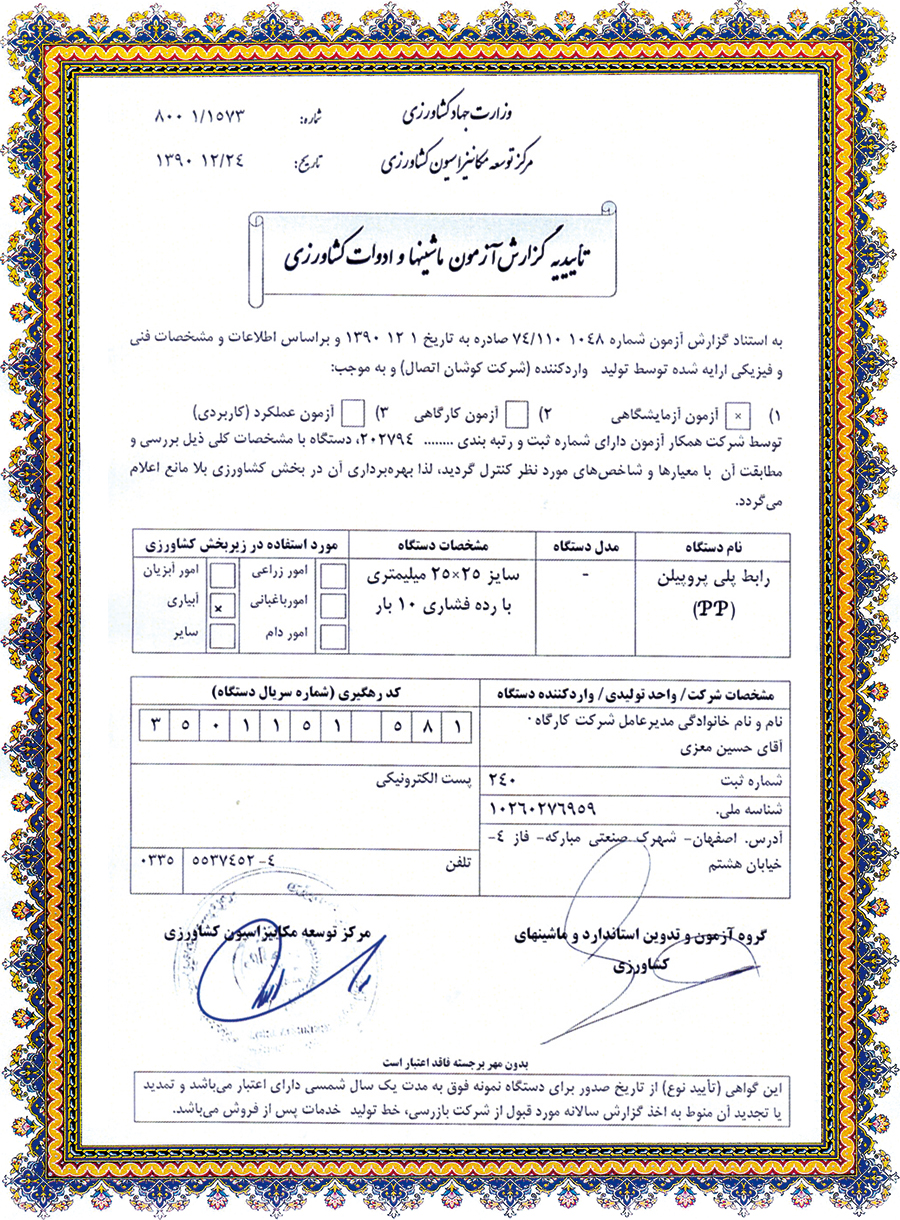 وزارت جهاد کشاورزی
شماره: ۸۰۰ ۱/۱۵۷۳
مرکز توسعه مکانیزاسیون کشاورزی
تاریخ: ۱۳۹۰ ۱۲/۲٤
تأییدیه گزارش آزمون ماشینها و ادوات کشاورزی
به استناد گزارش آزمون شماره ۱۰٤۸ ۷٤/۱۱۰ صادره به تاریخ ۱ ۱۲ ۱۳۹۰ و براساس اطلاعات و مشخصات فنی
و فیزیکی ارایه شده توسط تولید واردکننده (شرکت کوشان اتصال) و به موجب:
۱) × آزمون آزمایشگاهی ۲) آزمون کارگاهی ۳) آزمون عملکرد (کاربردی)
توسط شرکت همکار آزمون دارای شماره ثبت و رتبه بندی ........ ۲۰۲۷۹٤، دستگاه با مشخصات کلی ذیل بررسی و
مطابقت آن با معیارها و شاخص‌های مورد نظر کنترل گردید، لذا بهره‌برداری آن در بخش کشاورزی بلا مانع اعلام
می‌گردد.
نام دستگاه مدل دستگاه مشخصات دستگاه مورد استفاده در زیربخش کشاورزی
رابط پلی پروپیلن - سایز ۲۵×۲۵ میلیمتری امور زراعی امور آبزیان
(PP) با رده فشاری ۱۰ بار امورباغبانی × آبیاری
امور دام سایر
مشخصات شرکت/ واحد تولیدی/ واردکننده دستگاه کد رهگیری (شماره سریال دستگاه)
نام و نام خانوادگی مدیرعامل شرکت کارگاه
۳ ۵ ۰ ۱ ۱ ۵ ۱ ۵ ۸ ۱
آقای حسین معزی
شماره ثبت ۲٤۰
پست الکترونیکی
شناسه ملی. ۱۰۲٦۰۲۷٦۹۵۹
آدرس. اصفهان- شهرک صنعتی مبارکه- فاز ٤-
خیابان هشتم
تلفن ۵۵۳۷٤۵۲ -٤ ۰۳۳۵
گروه آزمون و تدوین استاندارد و ماشینهای
کشاورزی
مرکز توسعه مکانیزاسیون کشاورزی
بدون مهر برجسته فاقد اعتبار است
این گواهی (تأیید نوع) از تاریخ صدور برای دستگاه نمونه فوق به مدت یک سال شمسی دارای اعتبار می‌باشد و تمدید
یا تجدید آن منوط به اخذ گزارش سالانه مورد قبول از شرکت بازرسی، خط تولید خدمات پس از فروش می‌باشد.